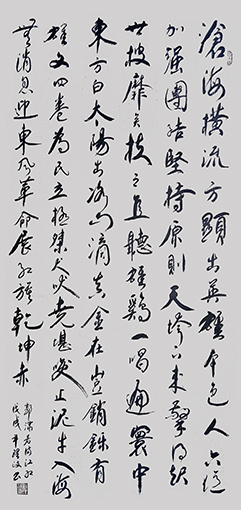 滄海橫流方顯出英雄本色人六億
加强團結堅持原則天垮下來擎得起
世披靡矣扶之直聽雄鷄一唱遍寰中
東方白太陽出冰山滴真金在豈銷鑠有
雄文四卷為民立極桀犬吠堯堪笑止泥牛入海
無消息迎東風革命展紅旗乾坤赤
郭沫若滿江紅
戊戌年